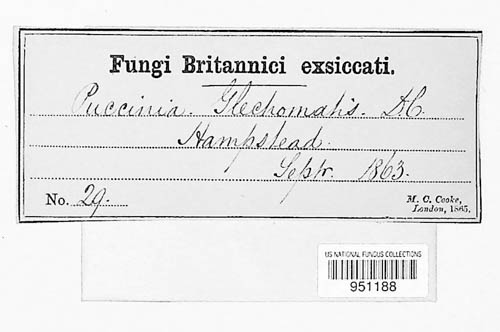 Fungi Britannici exsiccati.
Puccinia Glechomatis. D.C.
Hampstead.
Septr. 1863.
No. 29.
M. C. Cooke,
London, 1865.
US NATIONAL FUNGUS COLLECTIONS
951188